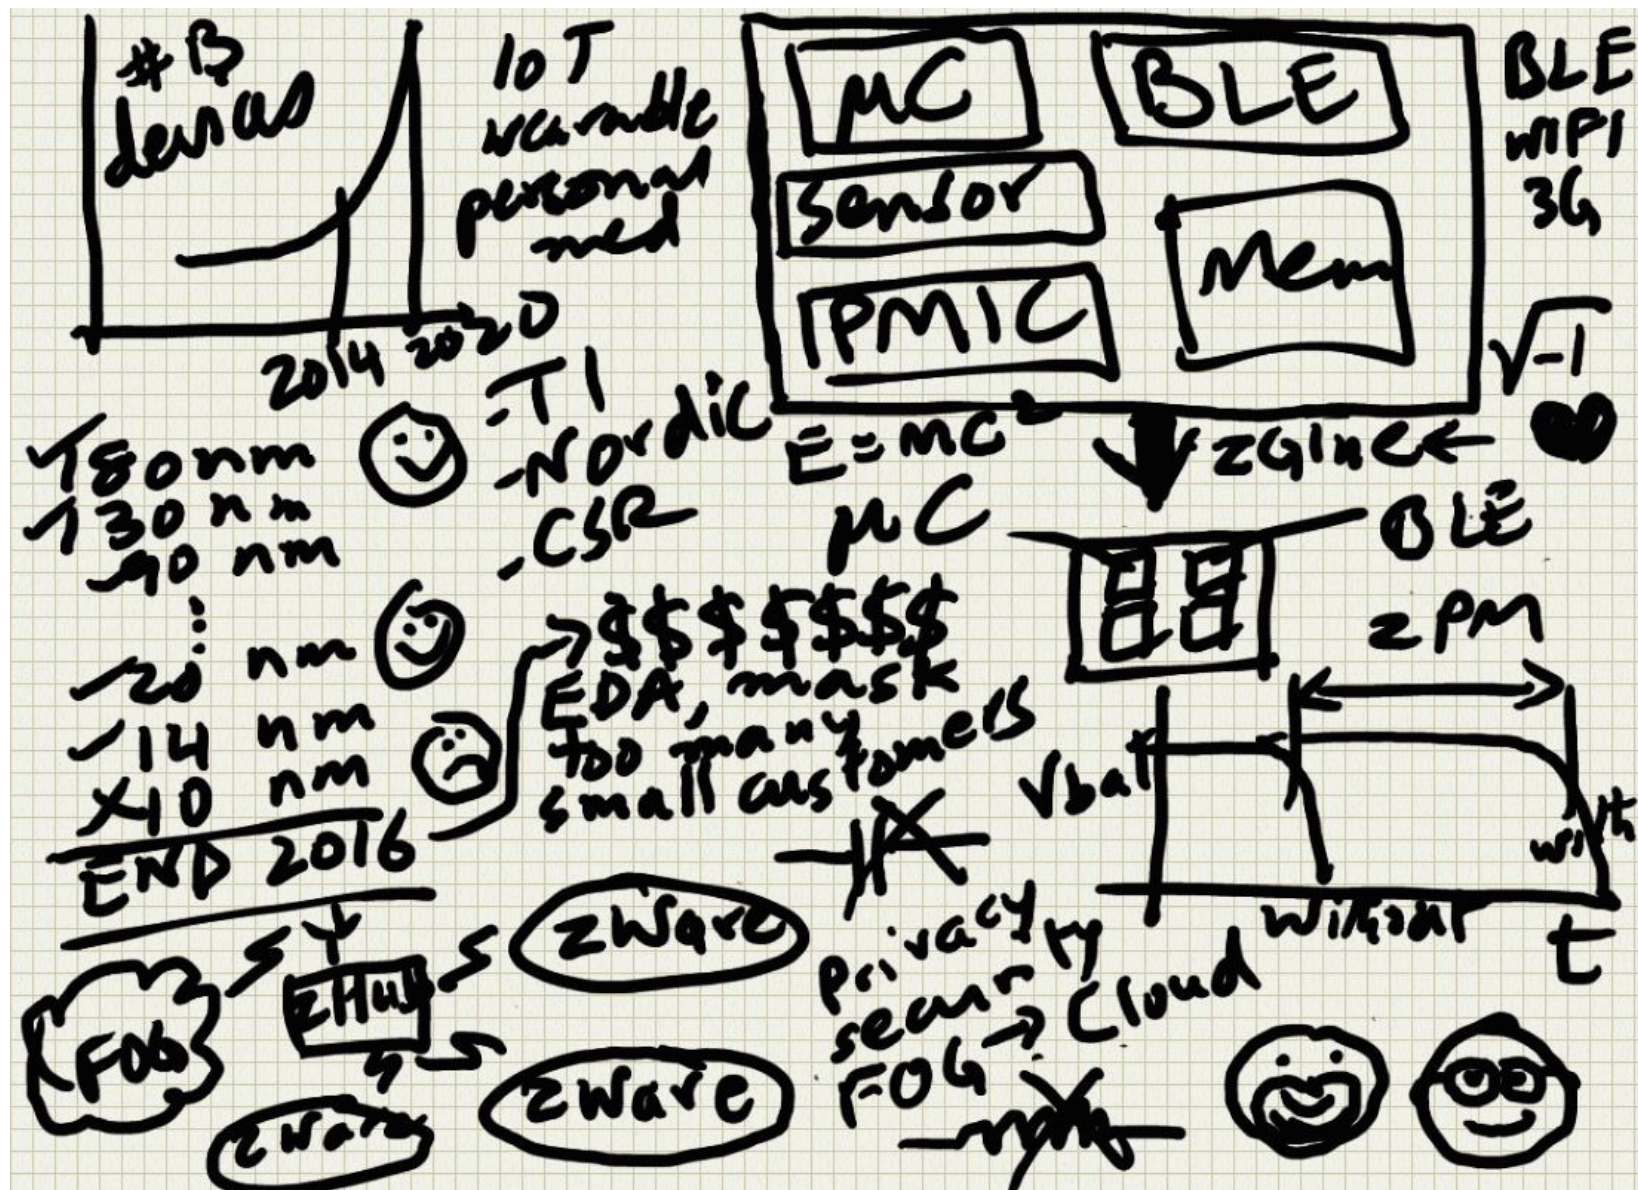 # B
devices
2014 2020
IoT
wearable
personal
med
μC
BLE
sensor
PMIC
Mem
BLE
WIFI
3G
√-1
180 nm
130 nm
90 nm
20 nm
14 nm
10 nm
END 2016
- TI
- Nordic
- CSR
E = MC²
μC
zGine
BLE
zPM
→ $$$$$$$
EDA, mask
too many
small customers
Vbat
with
without
t
FOG
zHub
zWare
zWare
zWare
privacy
security
FOG → Cloud